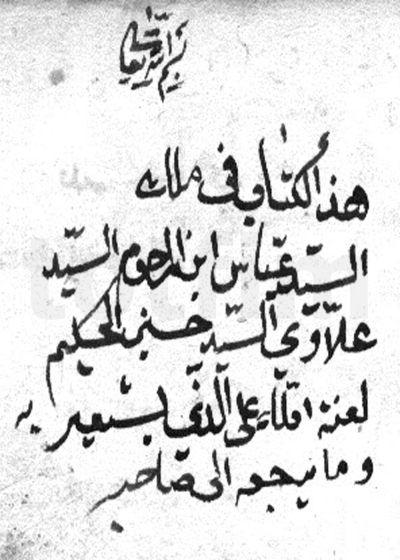 بسم الله تعالى
هذا الكتاب في ملك
السيد عباس ابن المرحوم السيد
علاوي السيد حسين الحكيم
لعنة الله على الذي يستعيره
وما يرجعه الى صاحبه